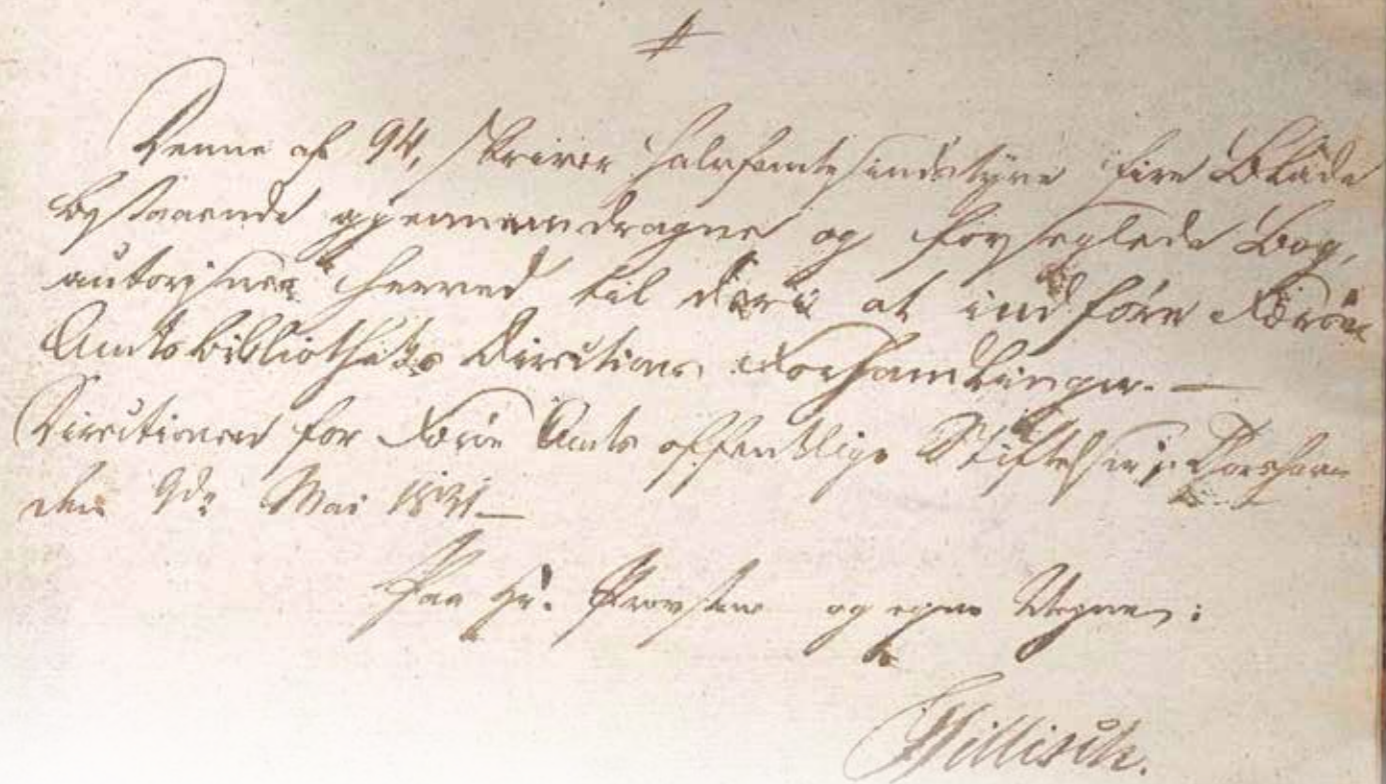 Denne af 94, skriver halvfemtesindstyve fire Blade
bestaaende gjennemdragne og forseglede Bog,
autoriseres herved til deri at indføre Færøe
Amtsbibliotheks Directions Forhandlinger. —
Directionen for Færøe Amts offentlige Stiftelser i Thorshavn
den 9de Mai 1831 —
Paa Hr. Provsten og egne Vegne:
Tillisch.